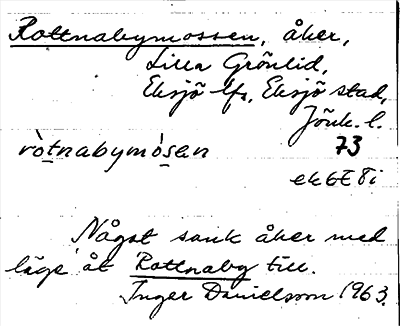 Rottnabymossen, åker,
Lilla Grönlid,
Eksjö lfs, Eksjö stad,
Jönk. l.
ròtnabymòsen 73
ek 6E 8i
Något sank åker med
läge åt Rottnaby till.
Inger Danielsson 1963.